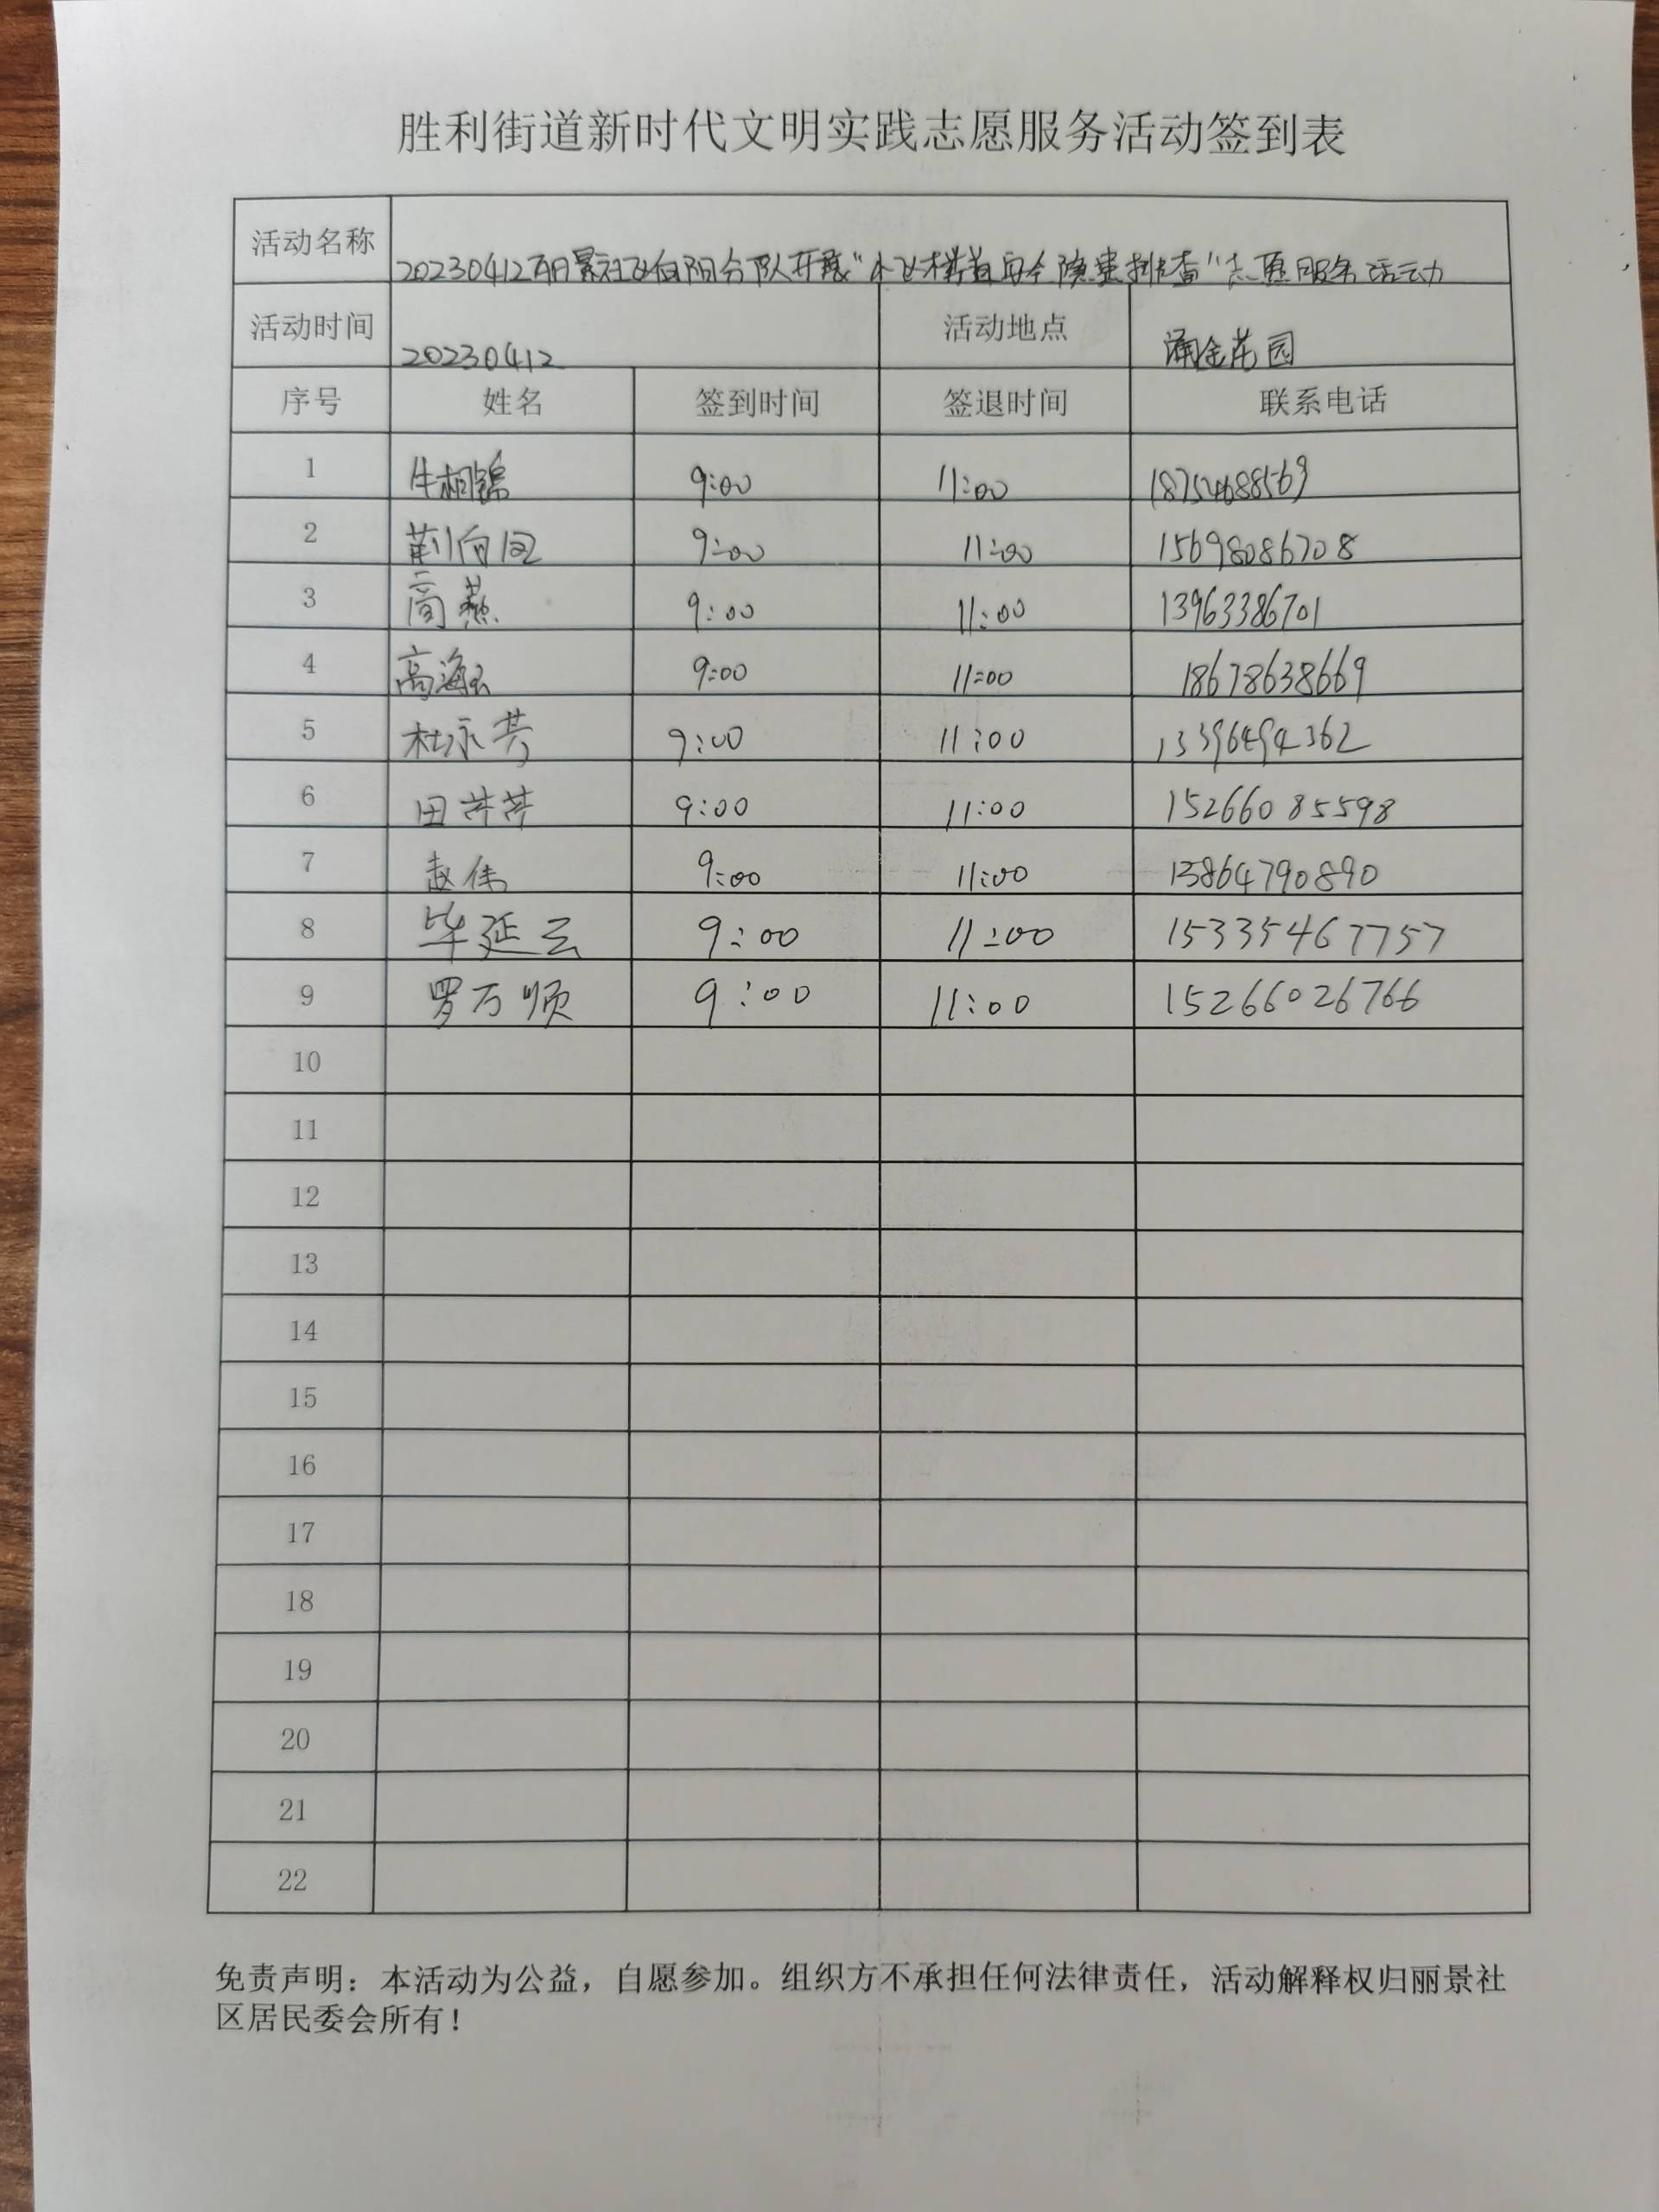 胜利街道新时代文明实践志愿服务活动签到表
活动名称 20230412丽景社区向阳分队开展“小区楼道安全隐患排查”志愿服务活动
活动时间 20230412 活动地点 涌金花园
序号 姓名 签到时间 签退时间 联系电话
1 牛相锦 9:00 11:00 18754688569
2 荆向 9:00 11:00 15698086708
3 高燕 9:00 11:00 13963386701
4 高海 9:00 11:00 18678638669
5 杜永芳 9:00 11:00 13396494362
6 田芹芹 9:00 11:00 15266085598
7 赵伟 9:00 11:00 13864790890
8 毕延云 9:00 11:00 15335467757
9 罗万顺 9:00 11:00 15266026766
10
11
12
13
14
15
16
17
18
19
20
21
22
免责声明：本活动为公益，自愿参加。组织方不承担任何法律责任，活动解释权归丽景社
区居民委会所有！